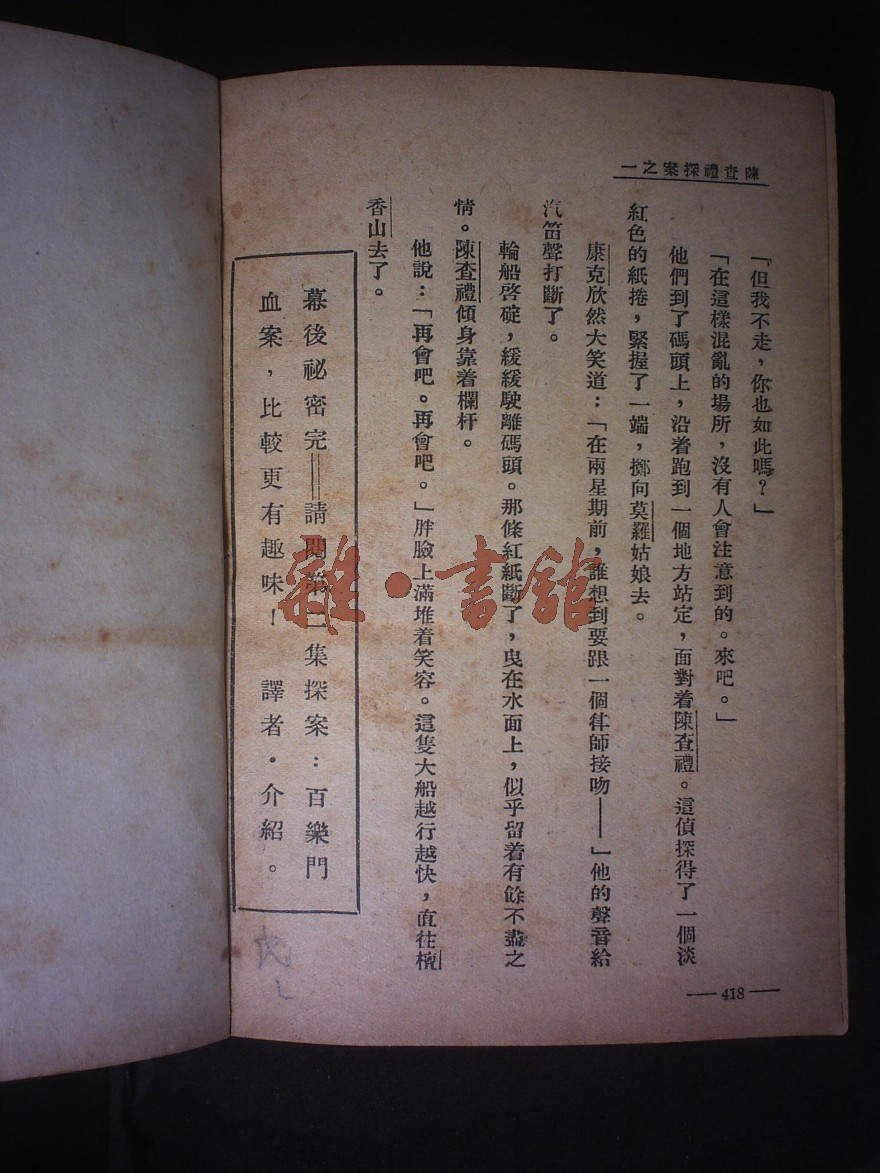 陳查禮探案之一
「但我不走，你也如此嗎？」
「在這樣混亂的場所，沒有人會注意到的。來吧。」
他們到了碼頭上，沿着跑到一個地方站定，面對着陳查禮。這偵探得了一個淡
紅色的紙捲，緊握了一端，擲向莫羅姑娘去。
康克欣然大笑道：「在兩星期前，誰想到要跟一個律師接吻——」他的聲音給
汽笛聲打斷了。
輪船啓碇，緩緩駛離碼頭。那條紅紙斷了，曳在水面上，似乎留着有餘不盡之
情。陳查禮傾身靠着欄杆。
他說：「再會吧。再會吧。」胖臉上滿堆着笑容。這隻大船越行越快，直往檀
香山去了。
幕後祕密完——請閱第二集探案：百樂門
血案，比較更有趣味！　譯者・介紹。
— 418 —
雜・書館